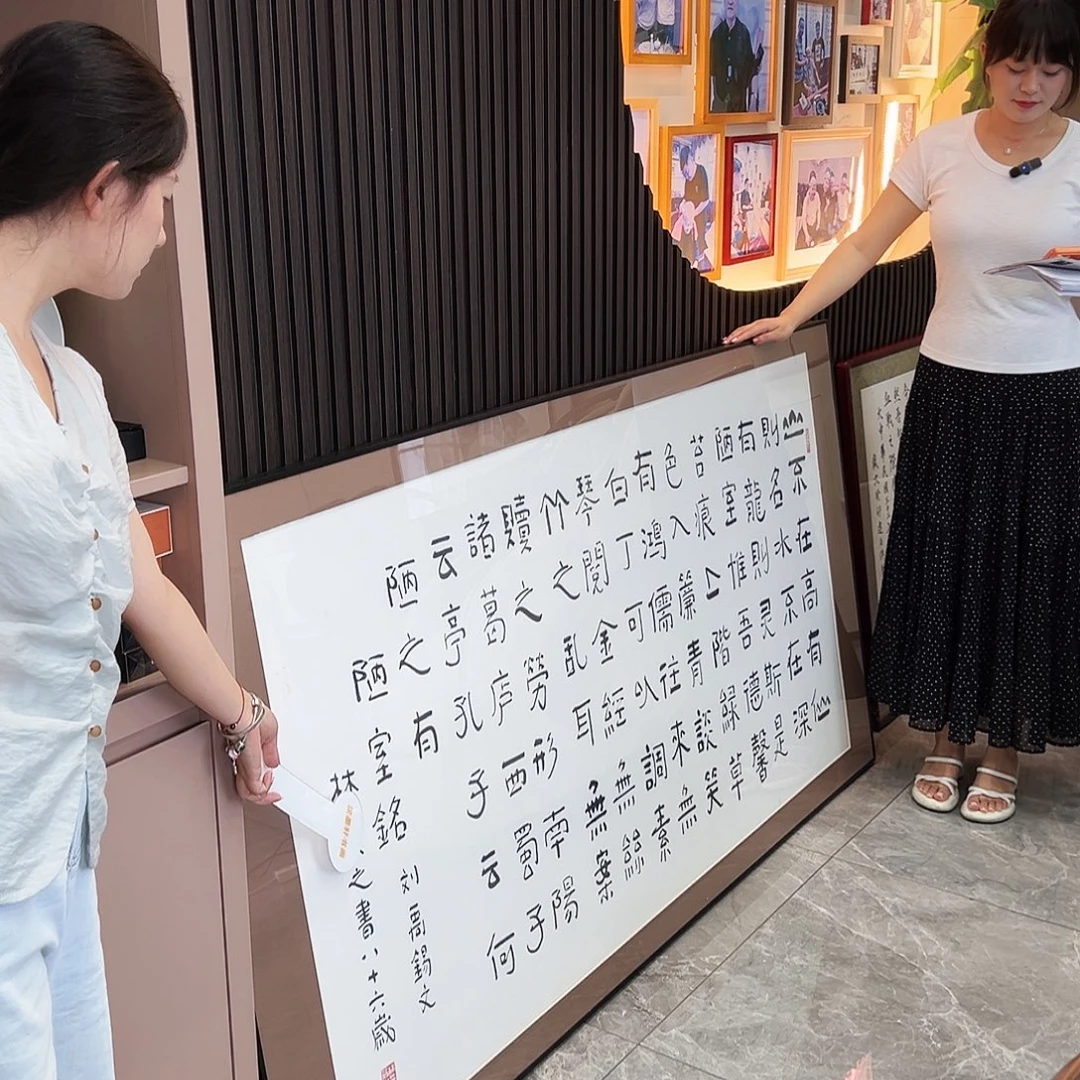 山不在高有仙
則名水不在深
有龍則灵斯是
陋室惟吾德馨
苔痕上階緑草
色入簾青談笑
有鴻儒往來無
白丁可以調素
琴閲金經無絲
竹之乱耳無案
牘之勞形南陽
諸葛庐西蜀子
云亭孔子云何
陋之有
陋室銘 刘禹錫文
林之書八十六歲